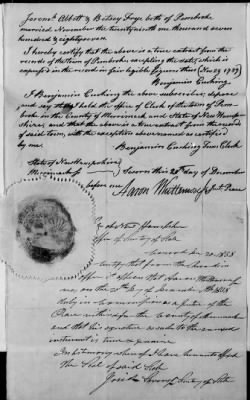 Jeremh. Abbott & Betsey Frye both of Pembroke
married November the twenty ninth one thousand seven
hundred & eighty seven.
I hereby certify that the above is a true extract from the
records of the town of Pembroke excepting the date, which is
expressed on the record in fair legible figures thus (Nov 29 1787)
Benjamin Cushing
I Benjamin Cushing the above subscriber, depose
and say that I hold the office of Clerk of the town of Pem-
broke in the County of Merrimack and State of New Hamp-
shire, and that the above is a true extract from the records
of said town, with the exception above named as certified
by me
Benjamin Cushing Town Clerk
State of New Hampshire
Merrimack ss Sworn this 28th day of December
before me
Aaron Whittemore Just. Peace
State of New Hampshire
Office of Secretary of State
Concord Jan 20 1838
certify that from the records in
office it appears that Aaron Whittemore
was, on the 28th day of December
duly in commission as a Justice of the
Peace within & for the County of Merrimack
and that his signature as such to the annexed
instrument is true & genuine
In testimony whereof I have hereunto affixed
the Seal of said State
Secretary of State